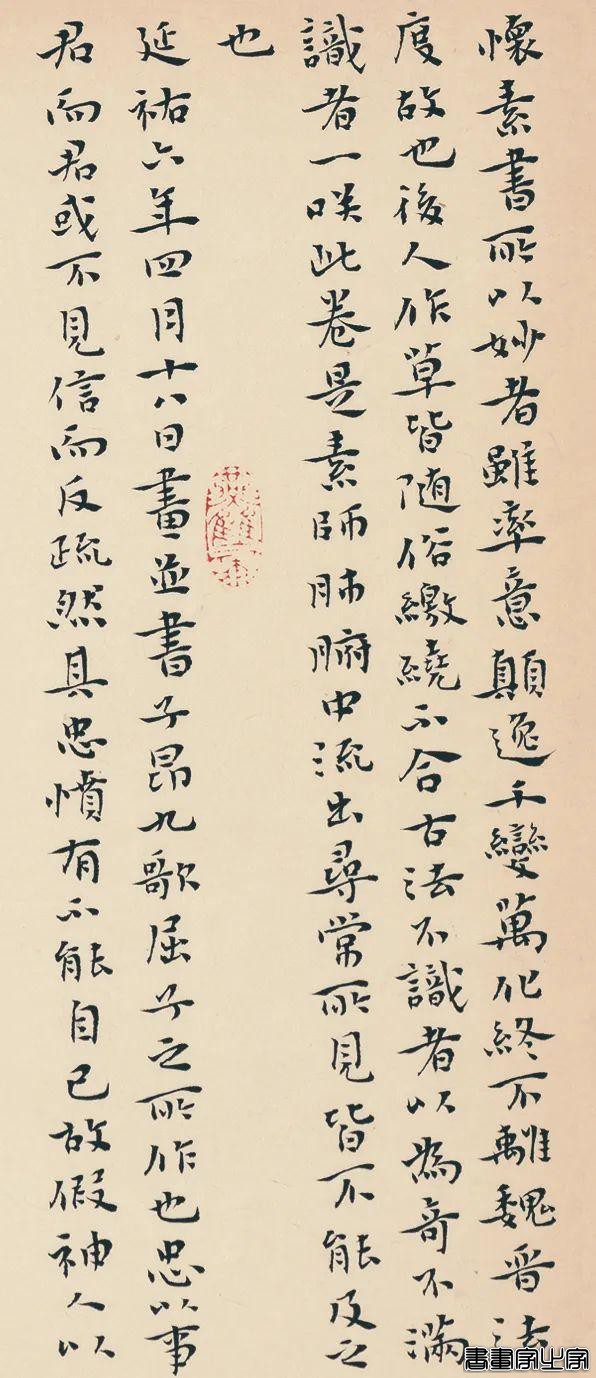 懷素書所以妙者雖率意顛逸千變萬化終不離魏晉法
度故也後人作草皆随俗繳繞不合古法不識者以為奇不滿
識者一咲此卷是素師肺腑中流出尋常所見皆不能及之
也
延祐六年四月十八日畫並書子昂九歌屈子之所作也忠以事
君而君或不見信而反疏然其忠憤有不能自已故假神人以
書畫家必字